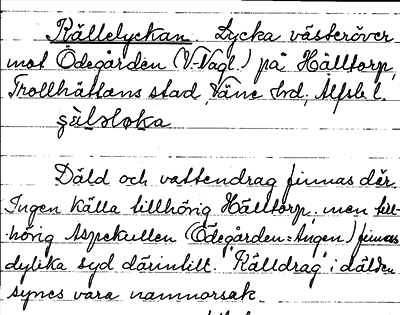 Källelyckan. Lycka västeröver
mot Ödegården (V-Nagl.) på Hälltorp,
Trollhättans stad, Väne hd, Älfsb. l.
Däld och vattendrag finnas där.
Ingen källa tillhörig Hälltorp, men till-
hörig Aspekullen (Ödegården=Ängen) finnas
dylika syd därintill. "Källdrag" i dälden
synes vara namnorsak.